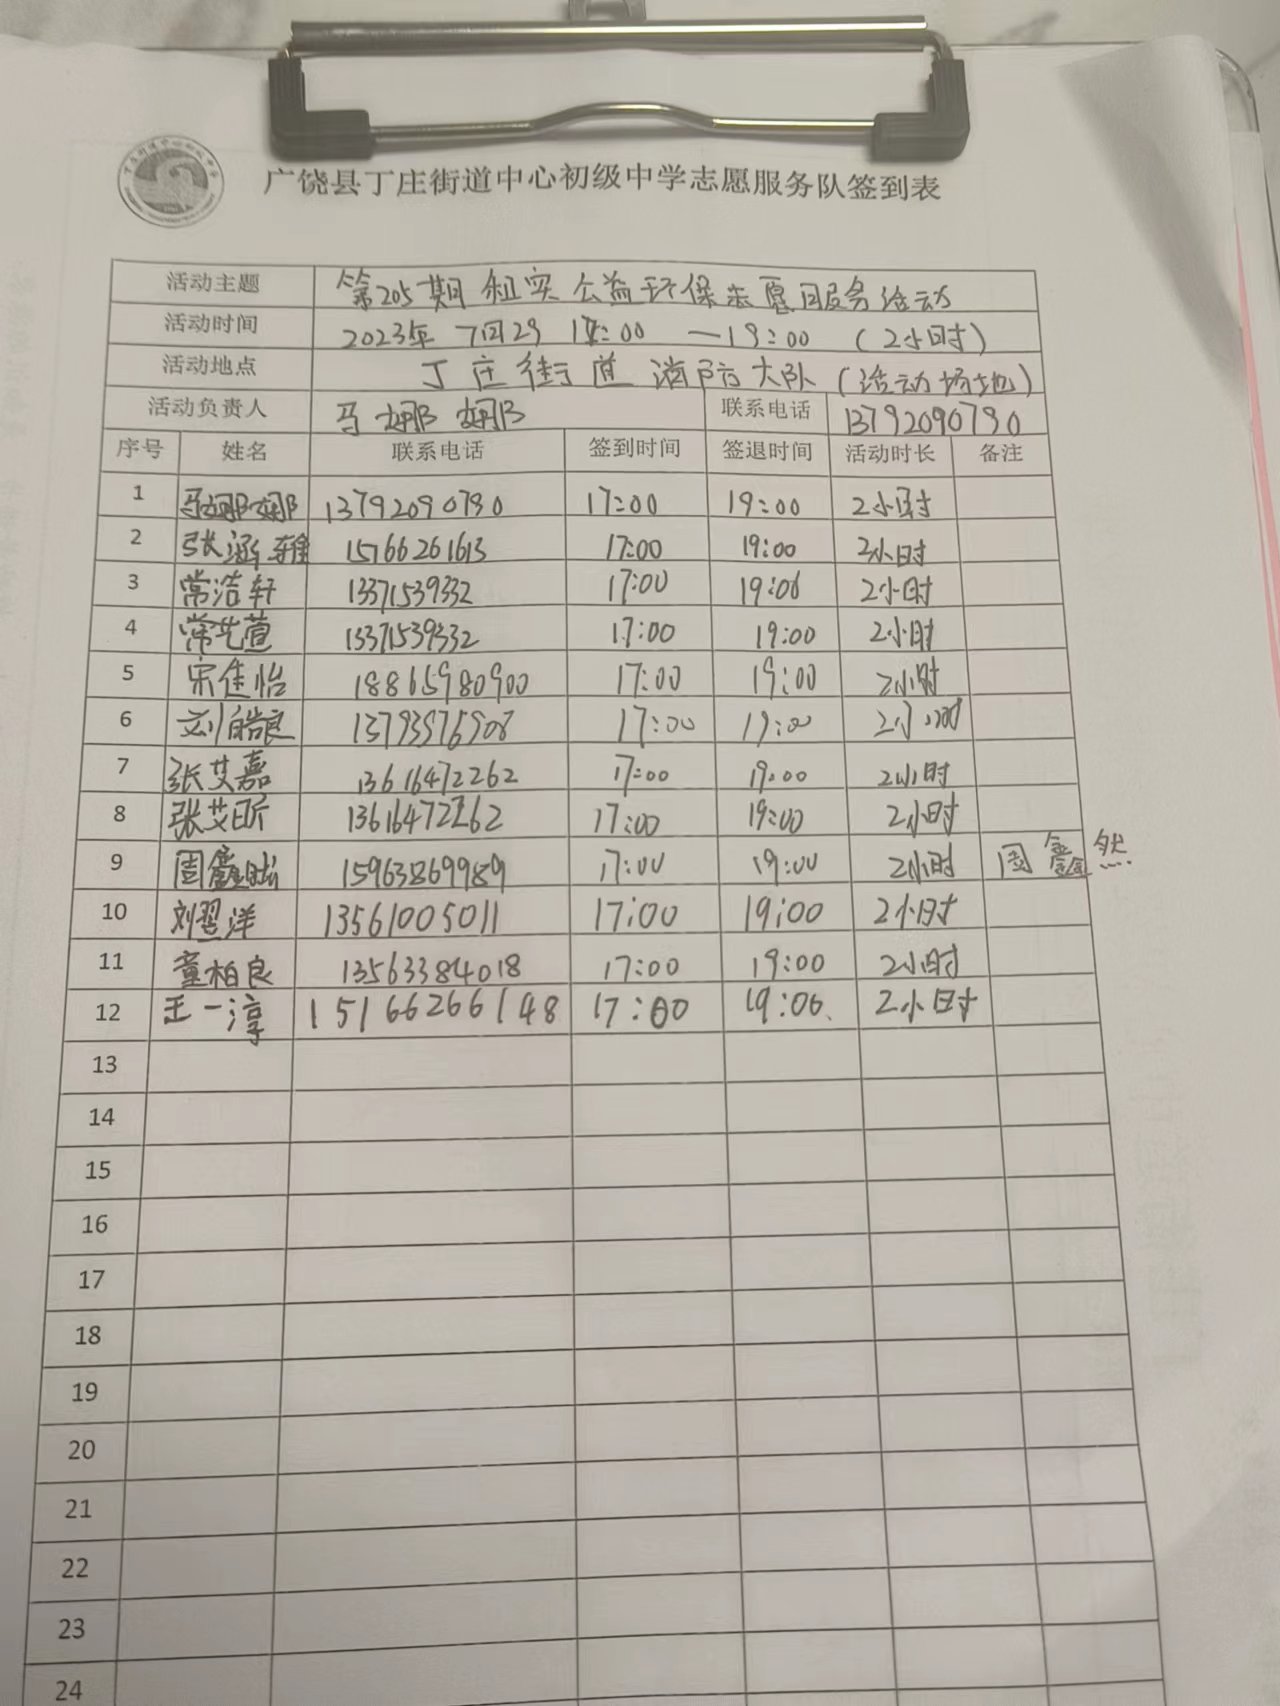 广饶县丁庄街道中心初级中学志愿服务队签到表
活动主题 第205期 红实公益环保志愿服务活动
活动时间 2023年 7月29 17:00 —19:00 (2小时)
活动地点 丁庄街道 消防大队 (活动场地)
活动负责人 马娜娜 联系电话 13792090790
序号 姓名 联系电话 签到时间 签退时间 活动时长 备注
1 马娜娜 13792090790 17:00 19:00 2小时
2 张涵 15166261613 17:00 19:00 2小时
3 常浩轩 13371539332 17:00 19:00 2小时
4 常艺萱 13371539332 17:00 19:00 2小时
5 宋佳怡 18865980900 17:00 19:00 2小时
6 刘皓良 13793976908 17:00 19:00 2小时
7 张艾嘉 13616472262 17:00 19:00 2小时
8 张艾昕 13616472262 17:00 19:00 2小时
9 周鑫 15963869989 17:00 19:00 2小时 周鑫然
10 刘翌洋 13561005011 17:00 19:00 2小时
11 童柏良 13563384018 17:00 19:00 2小时
12 王一淳 15166266148 17:00 19:00 2小时
13
14
15
16
17
18
19
20
21
22
23
24